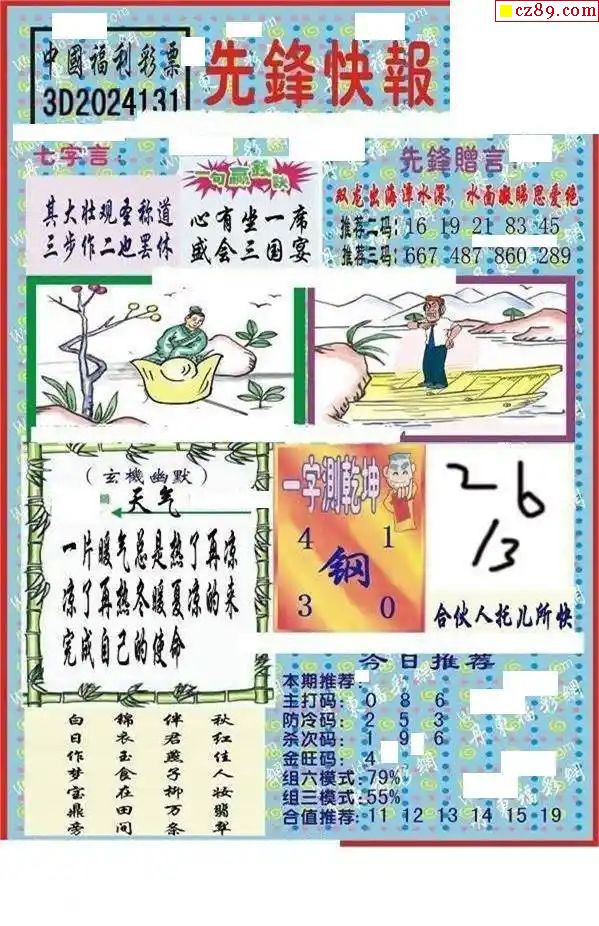 cz89.com
中國福利彩票
3D2024131
先鋒快報
七字言：
其大壮观圣称道
三步作二也罢休
一句赢
心有坐一席
盛会三国宴
先鋒贈言：
双龙出海潭水深，水面
推荐二码：16 19 21 83 45
推荐三码：667 487 860 289
（玄機幽默）
天气
一片暖气总是热了再凉
凉了再热冬暖夏凉的来
完成自己的使命
一字測乾坤
4 1
鋼
3 0
2 6
13
合伙人托儿所快
秋红佳人妆翡翠
伴君燕子柳万条
锦衣玉食在田间
白日作梦宝鼎旁
今日推荐
本期推荐：
主打码：0 8 6
防冷码：2 5 3
杀次码：1 9 6
金旺码：4
组六模式：79%
组三模式：55%
合值推荐：11 12 13 14 15 19